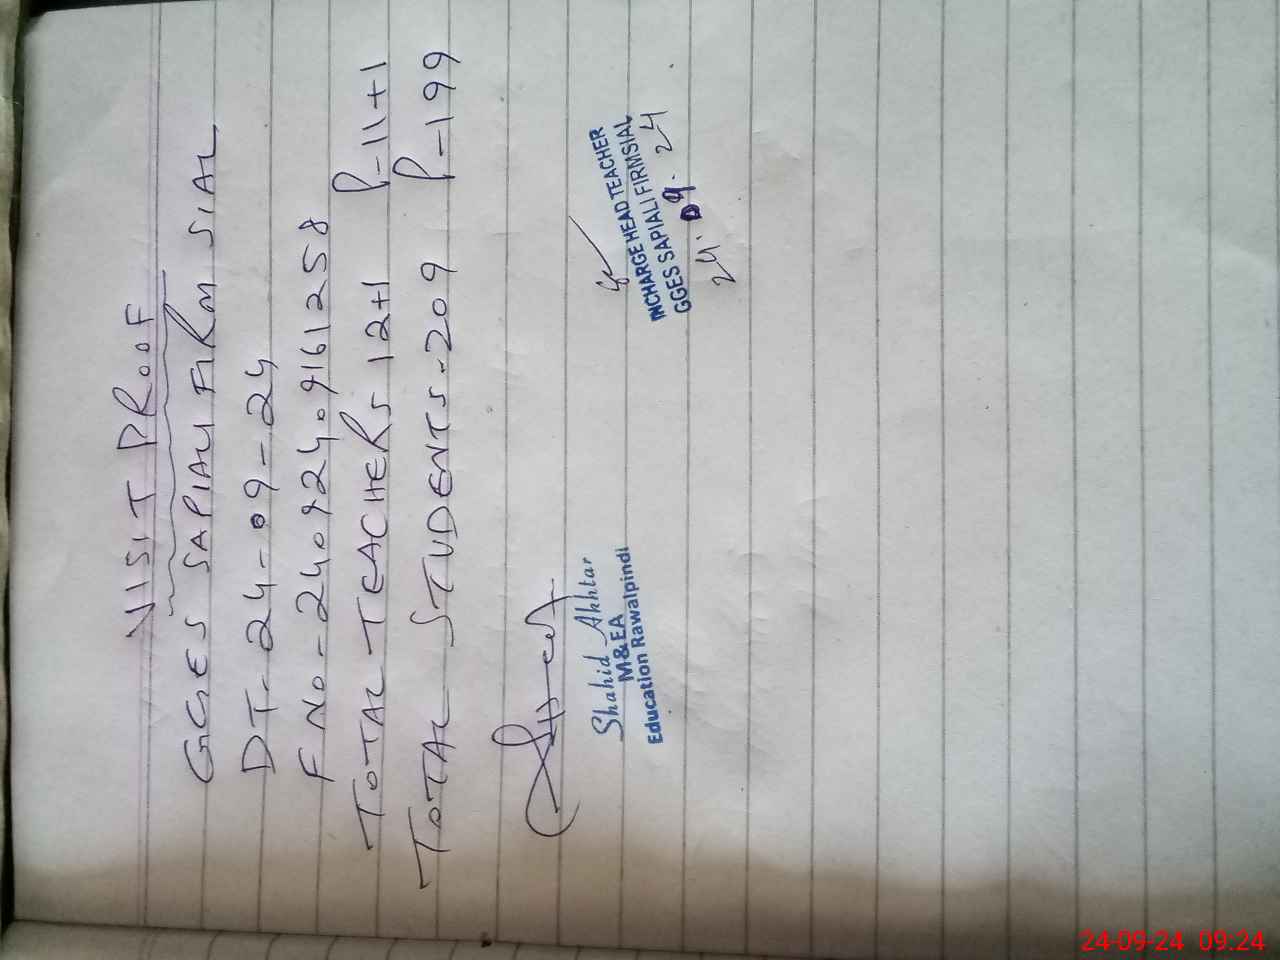 VISIT PROOF
GGES SAPIALI FIRM SIAL
DT-24-09-24
F NO-24092409161258
TOTAL TEACHERS 12+1 P-11+1
TOTAL STUDENTS-209 P-199
Shahid Akhtar
M & EA
Education Rawalpindi
INCHARGE HEAD TEACHER
GGES SAPIALI FIRMSIAL
24.09.24
24-09-24 09:24